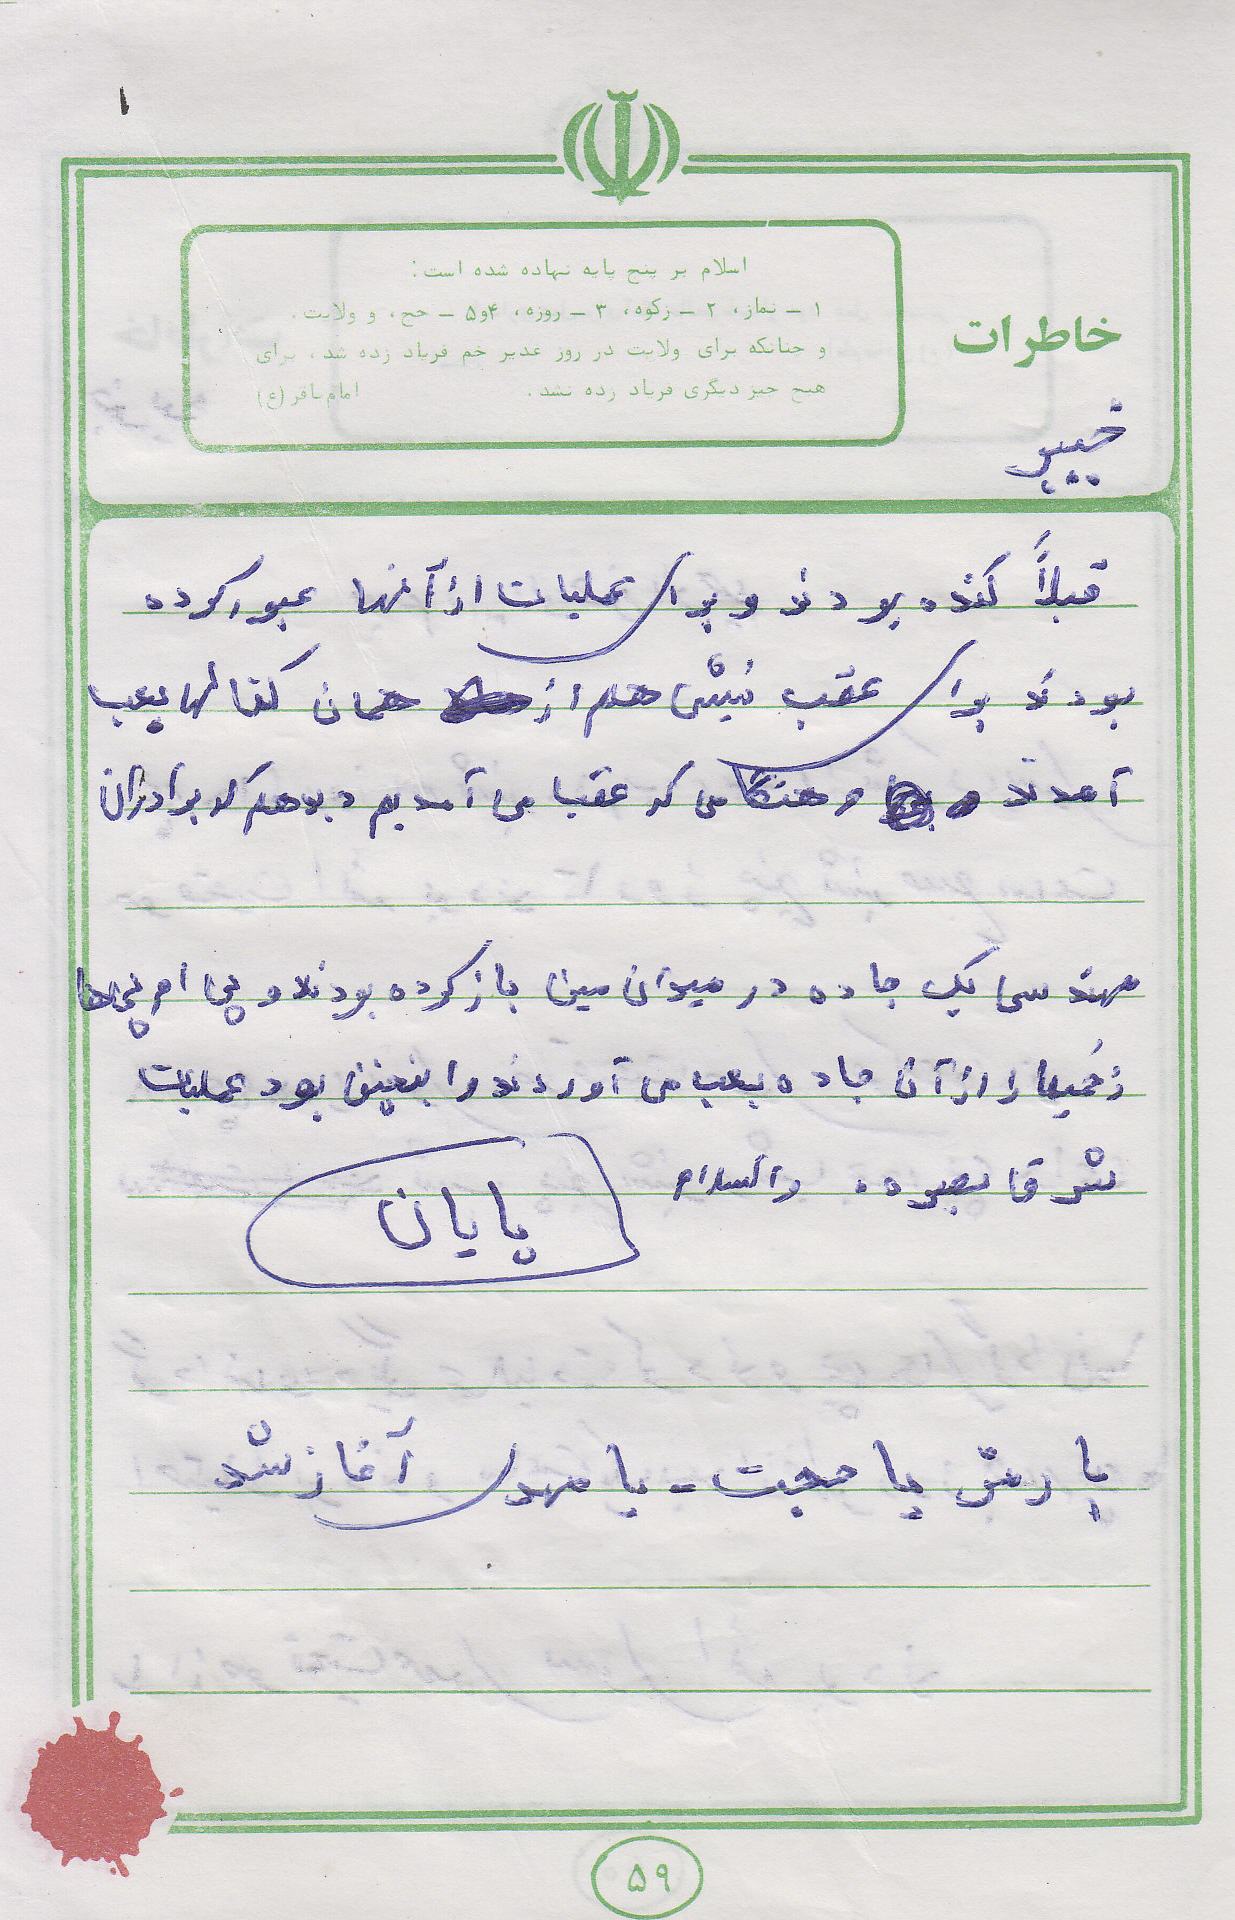 ۱
اسلام بر پنج پایه نهاده شده است:
۱ - نماز، ۲ - زکوة، ۳ - روزه، ۴و۵ - حج، و ولایت.
و چنانکه برای ولایت در روز غدیر خم فریاد زده شد، برای
هیچ چیز دیگری فریاد زده نشد. امام باقر (ع)
خاطرات
خیبر
قبلاً کنده بودند و برای عملیات از آنها عبور کرده
بودند برای عقب نیشی هم از همان کفالها بعب
آمدند و هنگامی که عقب می آمدیم دیدم که برادران
مهندسی یک جاده در میدان مین باز کرده بودند و پی ام پی ها
زخمیها را از آن جاده بعب می آوردند و اینچنین بود عملیات
شرق بصره. والسلام
پایان
با رمز یا حجت - یا مهدی آغاز شد
۵۹